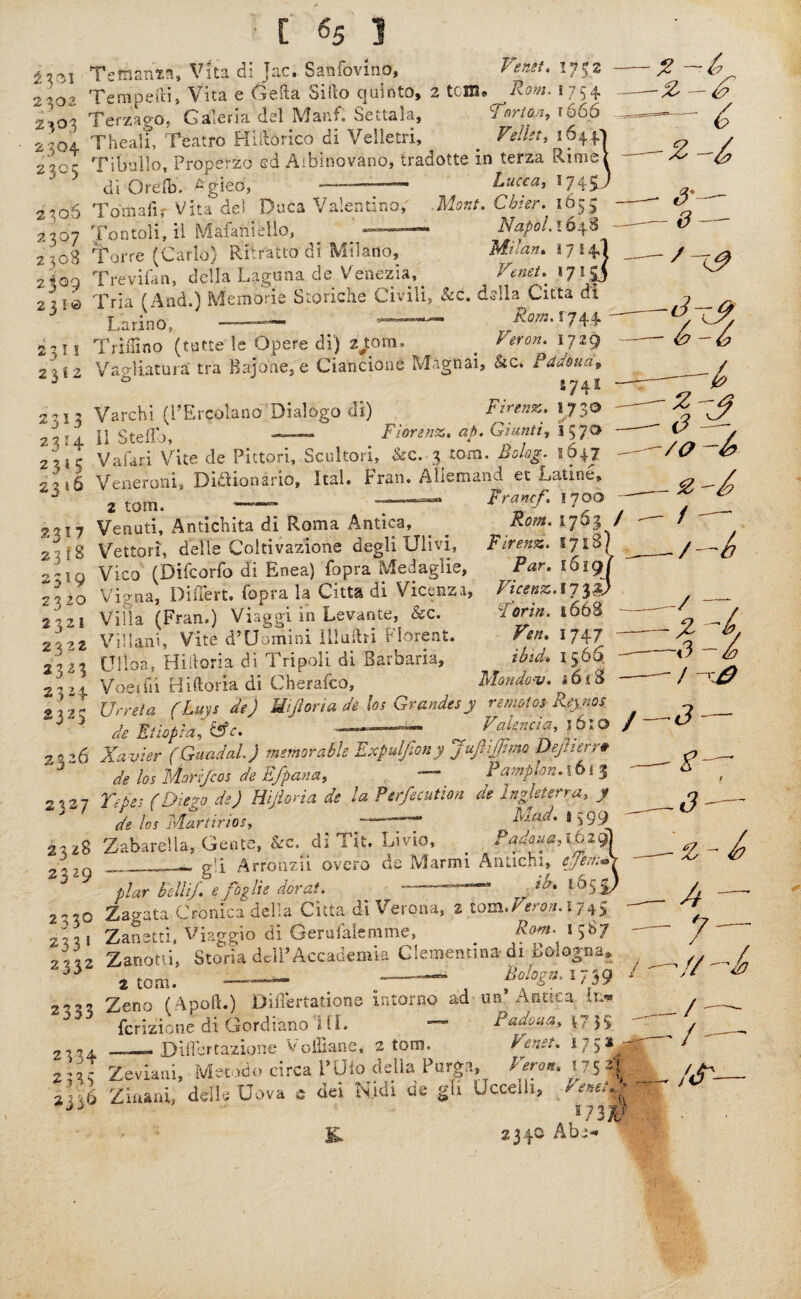 [ 65 ]
2301 Temanza, Vita di Jac. Sansovino, Venet. 1752 — 2 — 6
2302 Tempesti, Vita e Gesta Sisto quinto, 2 tom. Rom. 1754 — 2 — 6
2303 Terzago, Galeria del Manf. Settala, Torton, 1666 — 6
2304 Theali, Teatro Historico di Velletri, Vellet, 1644
2305 Tibullo, Properzo ed Albinovano, tradotte in terza Rime — 2 — 6
di Oresb. Agieo, —— Lucca, 1745
2306 Tomasi, Vita del Duca Valentino, Mont. Chier. 1655 — 3 —
2307 Tontoli, il Masaniello, —— Napol. 1648 — 3 —
2308 Torre (Carlo) Ritratto di Milano, Milan. 1714
2309 Trevisan, della Laguna de Venezia, Venet. 1715 — 1 — 9
2310 Tria (And.) Memorie Storiche Civili, &c. della Citta di
Larino, —— Rom. 1744 — 3 — 9
2311 Trissino (tutte le Opere di) 2 tom. Veron. 1729 — 6 — 6
2312 Vagliatura tra Bajone, e Ciancione Magnai, &c. Padoua,
1741 — 6
2313 Varchi (l'Ercolano Dialogo di) Firenz. 1730 — 2 — 9
2314 Il Stesso, —— Fiorenz. ap. Giunti, 1570 — 3 —
2315 Vasari Vite de Pittori, Scultori, &c. 3 tom. Bolog. 1647 — 10 — 6
2316 Veneroni, Dictionario, Ital. Fran. Allemand et Latine,
2 tom. —— Francf. 1700 — 2 — 6
2317 Venuti, Antichita di Roma Antica, Rom. 1763 / — 1 —
2318 Vettori, delle Coltivazione degli Ulivi, Firenz. 1718
2319 Vico (Discorso di Enea) sopra Medaglie, Par. 1619 — 1 — 6
2320 Vigna, Dissert. sopra la Citta di Vicenza, Vicenz. 173
2321 Villa (Fran.) Viaggi in Levante, &c. Torin. 1668 — 1 —
2322 Villani, Vite d'Uomini illustri Florent. Ven. 1747 — 2 — 6
2323 Ulloa, Historia di Tripoli di Barbaria, ibid. 1566 — 3 — 6
2324 Voersii Historia di Cherasco, Mondov. 1618 — 1 — 9
2325 Urreta (Luys de) Historia de los Grandes y remotos Reynos
de Etiopia, &c. —— Valencia, 1610 / — 3 —
2326 Xavier (Guadal.) memorable Expulsion y Justissimo Destierro
de los Moriscos de Espana, — Pamplon. 1613 — 8 —
2327 Yepes (Diego de) Historia de la Persecution de Ingleterra, y
de los Martirios, —— Mad. 1599 — 3 —
2328 Zabarella, Gente, &c. di Tit. Livio, Padoua, 1629
2329 —— gli Arronzii overo de Marmi Antichi, essem- — 2 - 6
plar bellis. e foglie dorat. —— ib. 1655
2330 Zagata Cronica della Citta di Verona, 2 tom. Veron. 1745 — 4 —
2331 Zanetti, Viaggio di Gerusalemme, Rom. 1587 — 7 —
2332 Zanotti, Storia dell'Accademia Clementina di Bologna,
2 tom. —— Bologn. 1739 / — 11 — 6
2333 Zeno (Apost.) Dissertatione intorno ad un' Antica In-
scrizione di Gordiano III. — Padoua, 1735 — 1 —
2334 —— Dissertazione Vossiane, 2 tom. Venet. 1752 — 1 —
2335 Zeviani, Metodo circa l'Uso della Purga, Veron. 1752
2336 Zinani, delle Uova e dei Nidi de gli Uccelli, Venet. — 15 —
1737
K 2340 Abe-